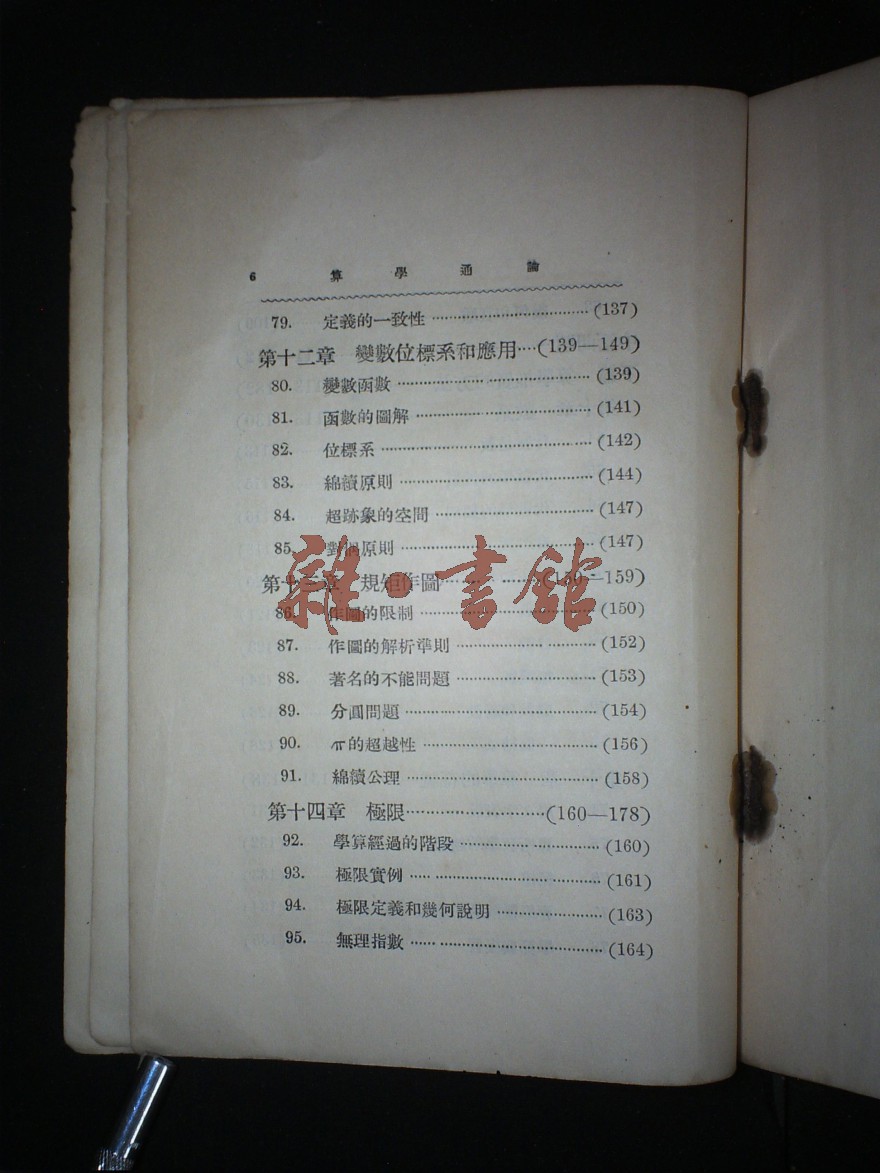 6 算學通論
79. 定義的一致性 ································ (137)
第十二章 變數位標系和應用···(139—149)
80. 變數函數 ································ (139)
81. 函數的圖解 ································ (141)
82. 位標系 ································ (142)
83. 綿續原則 ································ (144)
84. 超跡象的空間 ································ (147)
85. 對偶原則 ································ (147)
第十三章 規矩作圖 ················(150—159)
86. 作圖的限制 ································ (150)
87. 作圖的解析準則 ···························· (152)
88. 著名的不能問題 ···························· (153)
89. 分圓問題 ································ (154)
90. π的超越性 ································ (156)
91. 綿續公理 ································ (158)
第十四章 極限··························(160—178)
92. 學算經過的階段 ···························· (160)
93. 極限實例 ································ (161)
94. 極限定義和幾何說明 ······················ (163)
95. 無理指數 ································ (164)
雜·書館